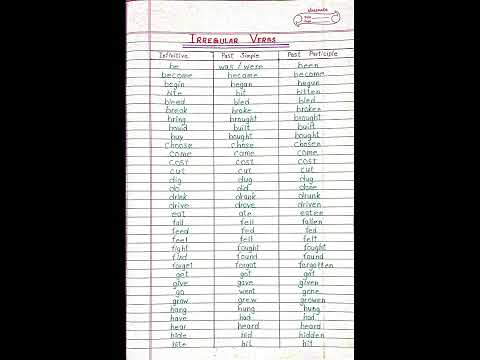 classmate
Date
Page
IRREGULAR VERBS
Infinitive Past Simple Past Participle
be was / were been
become became become
begin began begun
bite bit bitten
bleed bled bled
break broke broken
bring brought brought
build built built
buy bought bought
choose chose chosen
come came come
cost cost cost
cut cut cut
dig dug dug
do did done
drink drank drunk
drive drove driven
eat ate eaten
fall fell fallen
feed fed fed
feel felt felt
fight fought fought
find found found
forget forgot forgotten
get got got
give gave given
go went gone
grow grew growen
hang hung hung
have had had
hear heard heard
hide hid hidden
hit hit